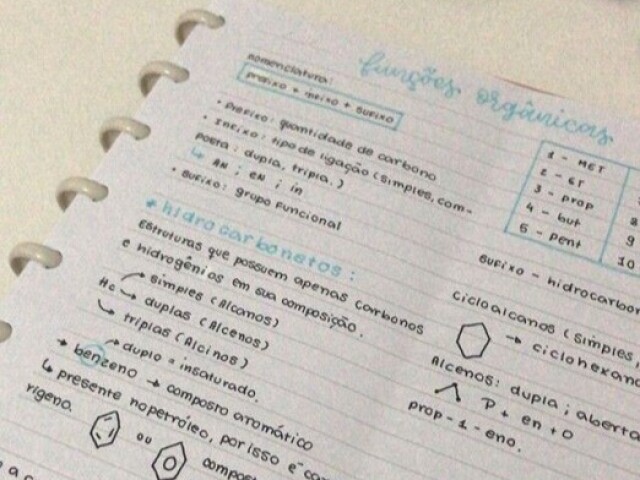 funções orgânicas
nomenclatura:
prefixo + infixo + sufixo
• Prefixo: quantidade de carbono
• Infixo: tipo de ligação (simples, com-
posta: dupla, tripla.)
↳ AN ; EN ; in
• Sufixo: grupo funcional
* hidrocarbonetos:
Estruturas que possuem apenas carbonos
e hidrogênios em sua composição.
simples (Alcanos)
Hc duplas (Alcenos)
triplas (Alcinos)
→ duplo = insaturado.
→ benzeno → composto aromático
↳ presente no petróleo, por isso é
rígeno.
ou
1 - MET
2 - ET
3 - prop
4 - but
5 - pent
8
9
10
Sufixo - hidrocarbon
Cicloalcanos (simples,
→ ciclohexano
Alcenos: dupla; aberta
P + en + o
prop-1-eno.